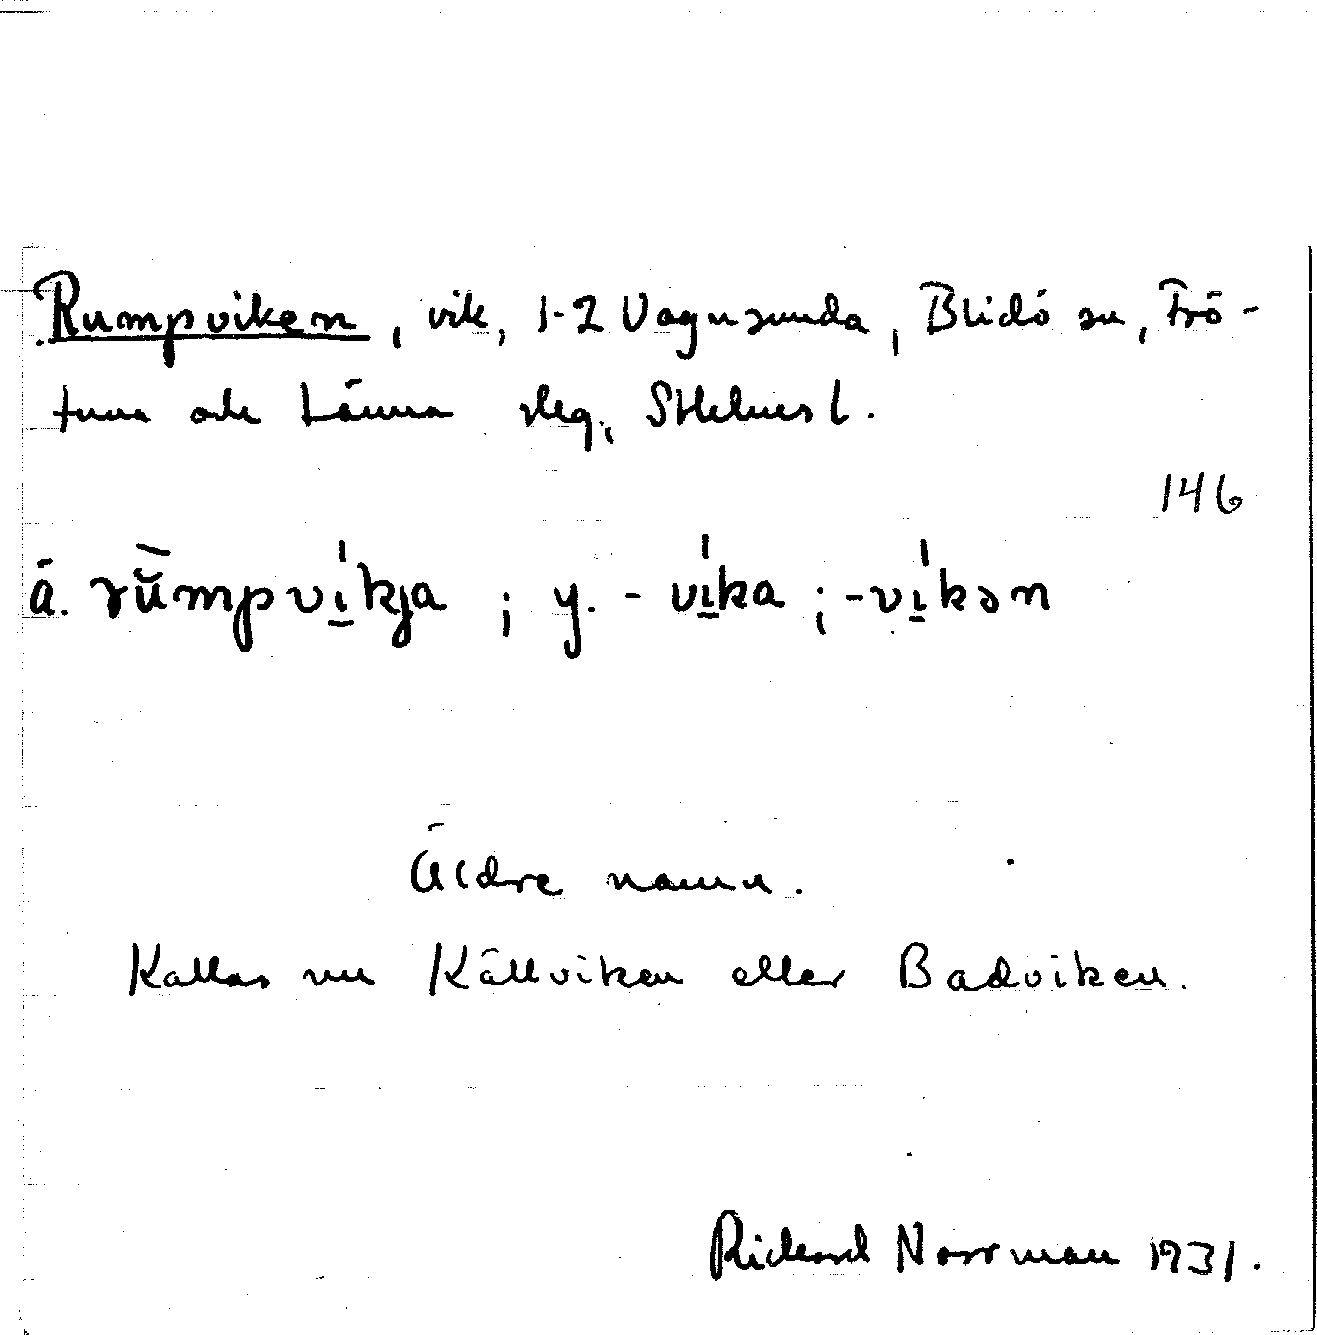 Rumpviken, vik, 1-2 Vagnsunda, Blidö sn, Frö-
tuna och Länna slg, Sthlms l.
146
ä. rū̆mpvi̱kja ; y. - vi̱ka ; -vi̱kən
Äldre namn.
Kallas nu Källviken eller Badviken.
Rickard Norrman 1931.